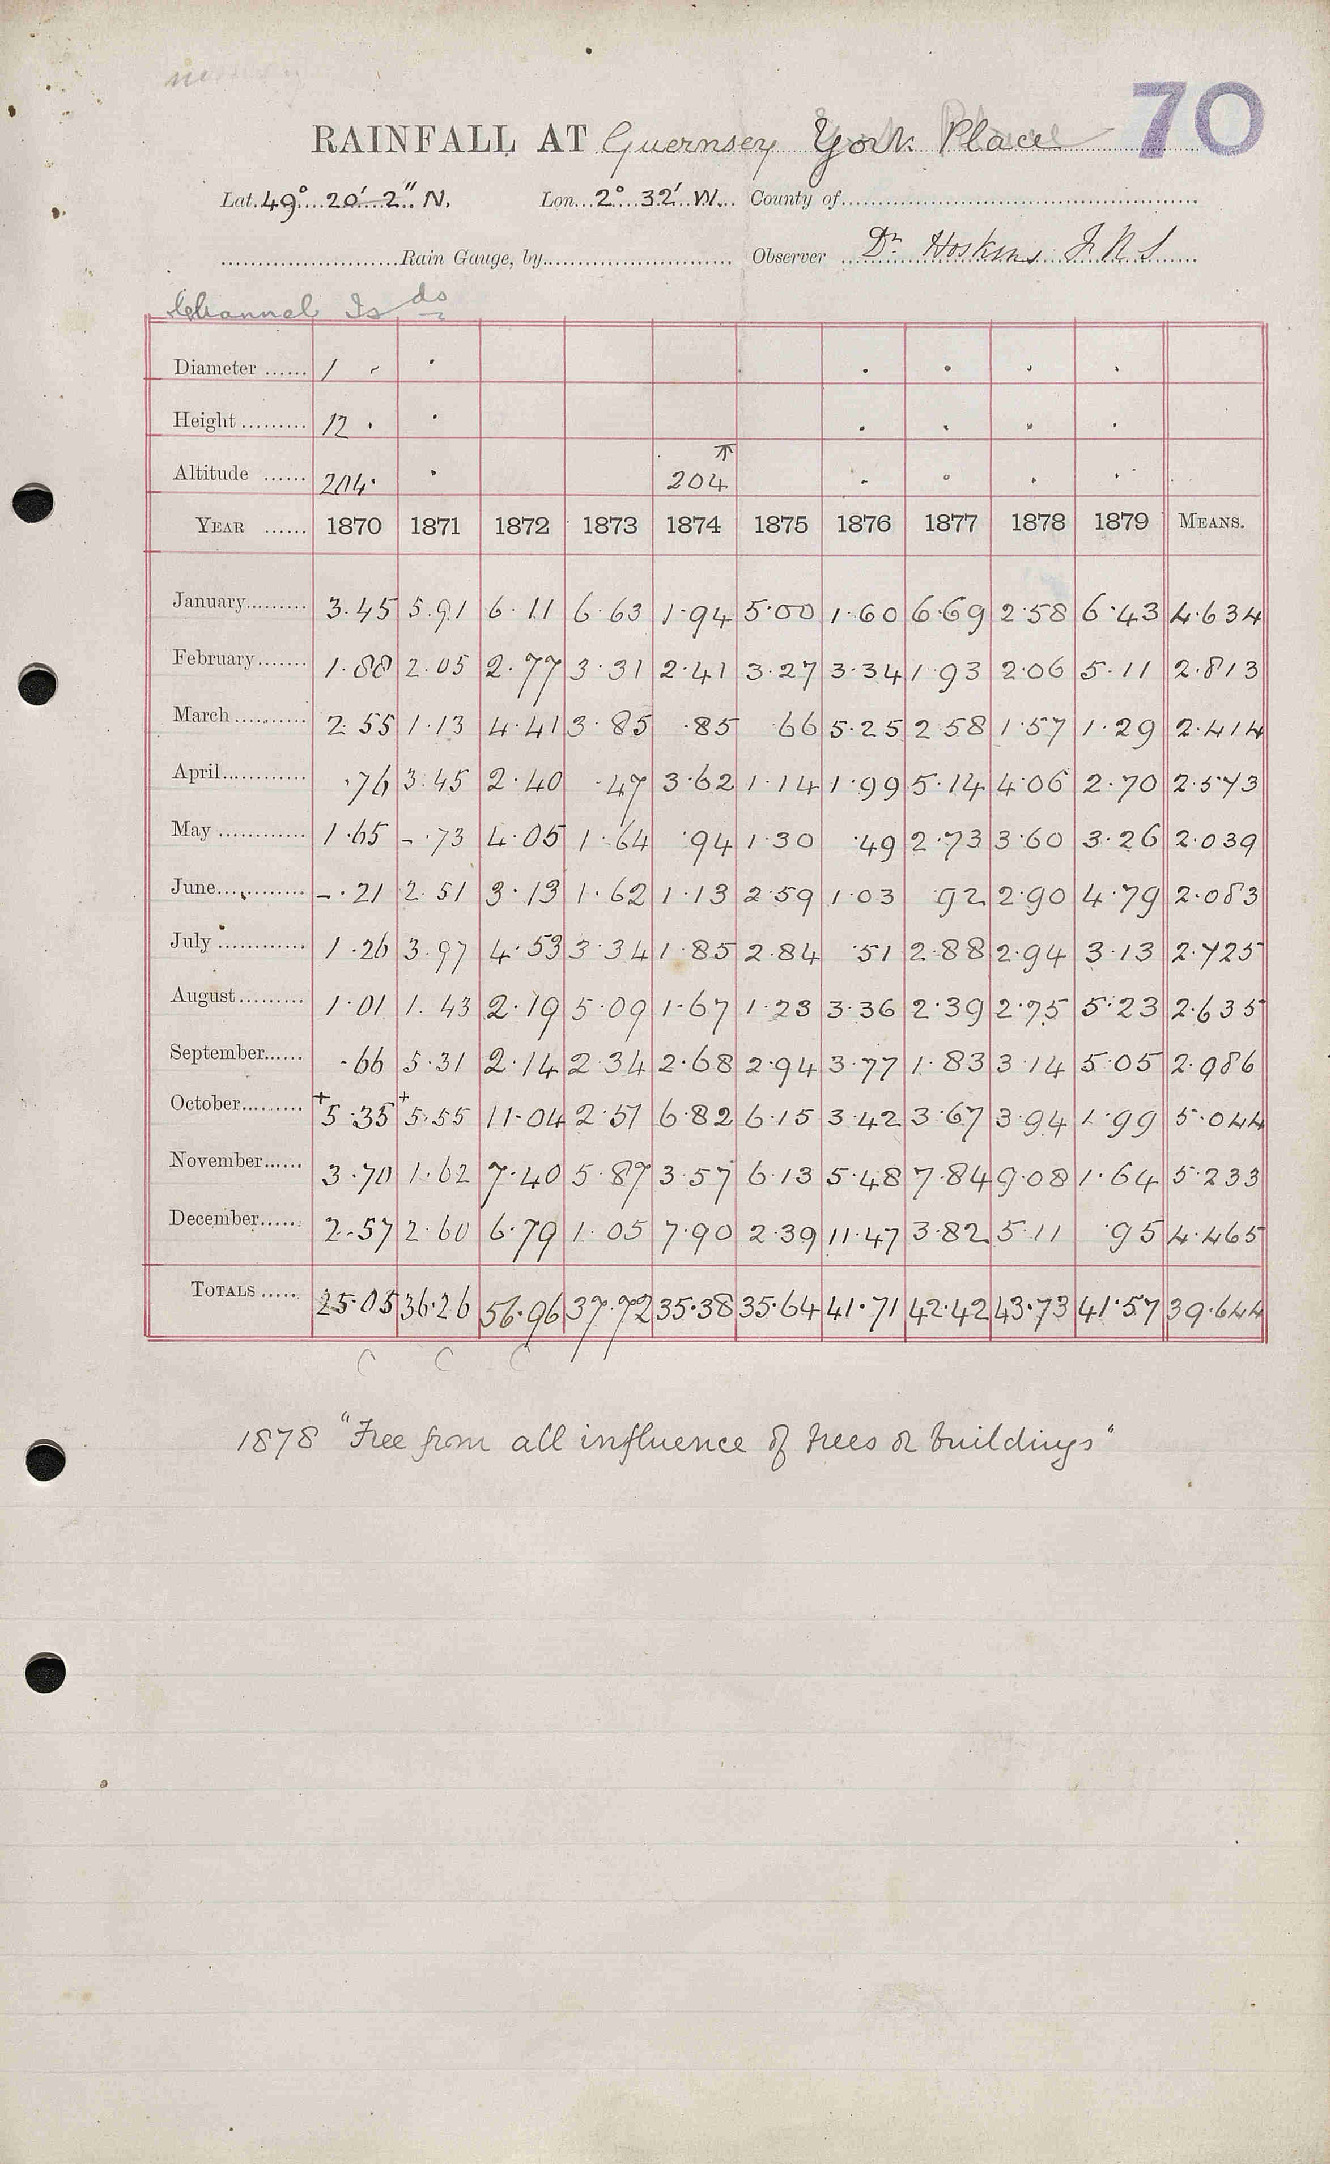 70
RAINFALL AT Guernsey York Place
Lat. 49° 20' 2" N. Lon. 2° 32' W. County of
Rain Gauge, by Observer Dr Hoskins F R S
Channel Is ds
Diameter ...... 1
Height ......... 12 .
Altitude ...... 204. 204
YEAR ...... 1870 1871 1872 1873 1874 1875 1876 1877 1878 1879 MEANS.
January......... 3.45 5.91 6.11 6.63 1.94 5.00 1.60 6.69 2.58 6.43 4.634
February....... 1.88 2.05 2.77 3.31 2.41 3.27 3.34 1.93 2.06 5.11 2.813
March .......... 2.55 1.13 4.41 3.85 .85 66 5.25 2.58 1.57 1.29 2.414
April............ .76 3.45 2.40 .47 3.62 1.14 1.99 5.14 4.06 2.70 2.573
May ............ 1.65 -.73 4.05 1.64 .94 1.30 .49 2.73 3.60 3.26 2.039
June............ -.21 2.51 3.13 1.62 1.13 2.59 1.03 92 2.90 4.79 2.083
July ............ 1.26 3.97 4.53 3.34 1.85 2.84 .51 2.88 2.94 3.13 2.725
August......... 1.01 1.43 2.19 5.09 1.67 1.23 3.36 2.39 2.75 5.23 2.635
September...... .66 5.31 2.14 2.34 2.68 2.94 3.77 1.83 3.14 5.05 2.986
October......... +5.35 +5.55 11.04 2.51 6.82 6.15 3.42 3.67 3.94 1.99 5.044
November...... 3.70 1.62 7.40 5.87 3.57 6.13 5.48 7.84 9.08 1.64 5.233
December...... 2.57 2.60 6.79 1.05 7.90 2.39 11.47 3.82 5.11 .95 4.465
TOTALS ..... 25.05 36.26 56.96 37.72 35.38 35.64 41.71 42.42 43.73 41.57 39.644
C C C
1878 "Free from all influence of trees or buildings"